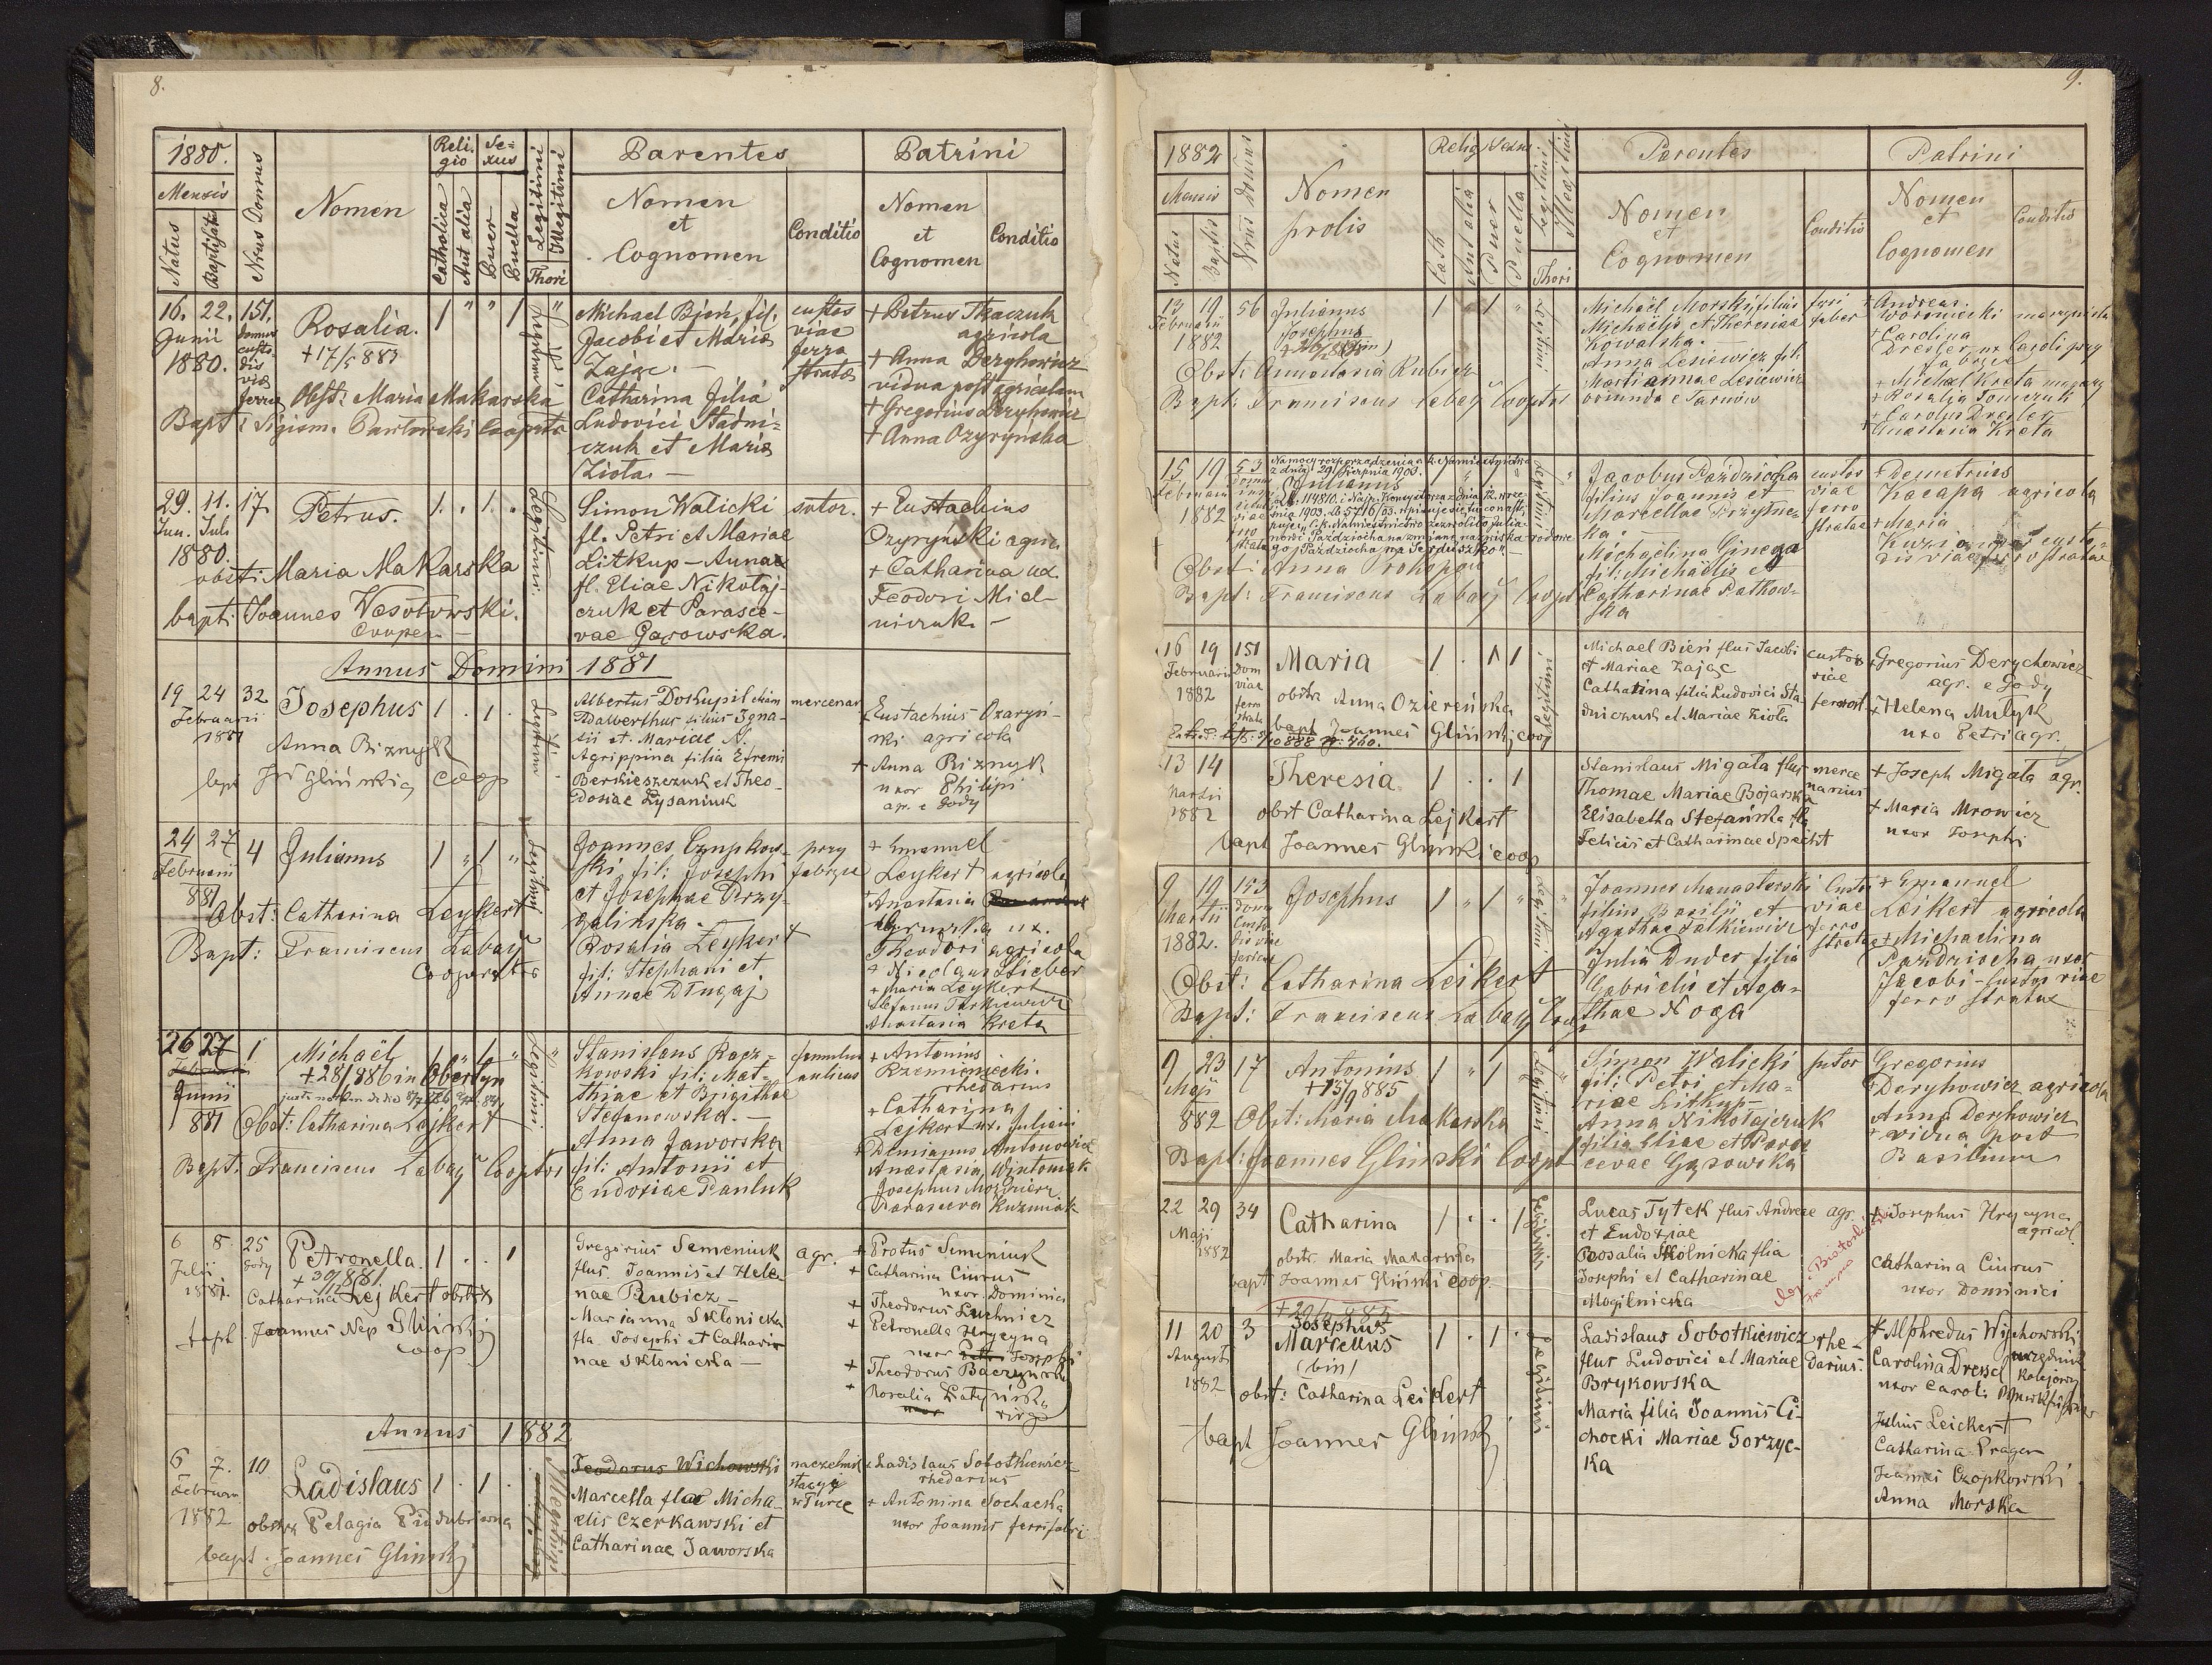 8.
1880.
Mensis
Natus
Baptisatus
Nrus Domus
Nomen
Religio
Catholica
Aut alia
Sexus
Puer
Puella
Legitimi
Illegitimi
Thori
Parentes
Nomen
et
Cognomen
Conditio
Patrini
Nomen
et
Cognomen
Conditio
16. 22. 151.
Junii
1880.
domus
custo
dis
viæ
ferreæ
Rosalia.
1 " " 1
Obst: Maria Makarska
Bapt: Sigism. Pawłowski Coopr
Michael Bień, fil.
Jacobi et Mariæ
Zając. —
Catharina filia
Ludovici Stadni=
czuk et Mariæ
Ziota. —
custos
viae
ferro
stratæ
+ Petrus Tkaczuk
agricola
+ Anna Derychowicz
vidua post agricolam
+ Gregorius Derychowicz
+ Anna Ozyryńska
29. 11. 17
Jun. Jul
1880.
Petrus.
1. . 1. .
Legitimi
obst: Maria Makarska
bapt: Joannes Wesołowski.
Cooper. —
Simon Walicki
fl. Petri et Mariae
Litkup – Annae
fl. Eliae Nikołaj-
czuk et Parasce-
vae Gąsowska.
sutor.
+ Eustachius
Ozyryński agric
+ Catharina ux.
Feodori Miel-
niczuk. —
Annus Domini 1881
19 24 32
Februarii
1881
Josephus
1 . 1 .
Anna Biznyk
bapt Jo Gliński coop
Albertus Doskupil
Adalberthus filius Igna-
tii et Mariae N.
Agrippina filia Efremi
Berkieszczuk et Theo-
dosiae Lysaniuk
mercenar
Eustachius Ozaryń-
ski agricola
+ Anna Biznyk
uxor Philipi
agr. e Gody
24 27 4
Februarii
881
Julianus
1 " 1 "
Legitimi
Obst: Catharina Leykert
Bapt: Franciscus Łabay
Cooperator
Joannes Czupkow-
ski fil: Josephi
et Josephae Przy-
galińska.
Rosalia Leykert
fil: Stephani et
Annae Długaj
przy
fabryce
+ Emanuel
Leykert agricola
+ Anastasia
ux.
Theodori agricola
+ Nicolaus Stieber
+ Maria Leykert
Stefanus Tarkiewicz
Anastasia Kreta
26 27 1
Junii
881
Michaël
+ 28/ 886 in Obertyn
Obst: Catharina Lejkert
Bapt: Franciscus Łabay Cooptor
Legitimi
Stanislaus Racz-
kowski fil: Mat-
thiae et Brigithae
Stefanowska. —
Anna Jaworska
fil: Antonii et
Eudoxiae Pauluk
famulus
aulicus
+ Antonius
Rzemieniecki.
rhedarius
+ Catharina
Lejkert ux. Juliani
Demianus Antonowicz
Anastasia Wintoniak
Josephus Moździerz
Parasceva Kuzmiak
6 8 25
Julii Gody
1881.
Petronella.
1 . . 1
+ 30/ 881
Catharina Lejkert obstetr
bapt. Joannes Nep Gliński
coop
Gregorius Semeniuk
flus. Joannis et Hele-
nae Rubicz —
Marianna Skłonicka
fla. Josephi et Cathari-
nae Skłonicka —
agr.
+ Protus Semeniuk
+ Catharina Ciurus
uxor Dominici
+ Theodorus Luchnicz
+ Petronella Hrycyna
uxor Josephi
+ Theodorus Baczyński
+ Rosalia Łatyńska
virgo
Annus 1882
6 7. 10
Februar.
1882
Ladislaus
1 . 1 .
Illegitimi
obstetr Pelagia
bapt. Joannes Gliński
Teodorus Wichowski
Marcella flae Micha-
elis Czerkawski et
Catharinae Jaworska
naczelnik
stacyi
w Turce
+ Ladislaus Sobotkiewicz
rhedarius
+ Antonina Sochacka
uxor Joannis ferrifabri
9.
1882
Mensis
Natus
Baptis
Nrus domus
Nomen
prolis
Relig
Cath
Aut alia
Sexus
Puer
Puella
Legitimi
Illegitimi
Thori
Parentes
Nomen
et
Cognomen
Conditio
Patrini
Nomen
et
Cognomen
Conditio
13 19 56
Februarii
1882
Julianus
Josephus
1 " 1 "
Legitimi
Obst: Anastasia Rubicz
Bapt: Franciscus Łabay Cooptor
Michaël Morski filius
Michaëlis et Theresiae
Kowalska.
Anna Lesiewicz fil.
Mariannae Lesiewicz
oriunda e Tarnów
ferri
faber
+ Andreas
Woroniecki
+ Carolina
Dresler ux Caroli przy
fabryce
+ Michael Kreta
+ Rosalia Tomczuk
+ Carolus Dresler
+ Anastasia Kreta
15 19 53
Februarii
1882
Na mocy rozporządzenia c. k. Namiestnictwa
z dnia 29 Sierpnia 1903.
Julianus
L. 114810. i Najp. Konsystorza z dnia 12. wrze-
śnia 1903. Lb 5716/03. wpisuje się, co nast-
puje: C. k. Namiestnictwo zezwoliło Julia-
nowi Pazdziocha na zmianę nazwiska rodowe-
go „Pazdziocha" na „Serduszko". —
Obst: Anna
Bapt: Franciscus Łabay Coopt
Jacobus Paździocha
filius Joannis et
Marcellae Krzyśnic-
ka.
Michaëlina Ginega
fil: Michaëlis et
Catharinae Patkow-
ska
custos
viae
ferro
stratae
+ Demetrius
Kacapa agricola
+ Maria
custo-
dis viae ferro stratae
16 19 151
Februarii
1882
Dom
viae
ferro
strata
Maria
1 . 1 1
Legitimi
obstr Anna Oziereńska
bapt Joannes Gliński coop
Michael Bień flus Jacobi
et Mariae Zając
Catharina filia Ludovici Sta
dniczuk et Mariae Ziota
custos
viae
ferrost.
+ Gregorius Derychowicz
agr. e Gody
+ Helena Mulyk
uxo Petri agr.
13 14
Martii
1882
Theresia
1 . . 1
obst Catharina Lejkert
bapt Joannes Gliński coop
Stanislaus Migała flus
Thomae Mariae Bojarska
Elisabetha Stefańska fla
Felicis et Catharinae Specht
merce
narius
+ Joseph Migała agr.
+ Maria Mrowicz
uxor Josephi
9 19 153
Martii
1882.
domus
Custo
dis viae
ferreae
Josephus
1 " 1 "
Legitimi
Obst: Catharina Leikert
Bapt: Franciscus Łabay Coop
Joannes Manasterski
filius Basilii et
Agathae Falkiewicz
Julia Duder filia
Gabrielis et Aga-
thae Noga
Custos
viae
ferro
stratae
+ Emanuel
Leikert agricola
+ Michaelina
Pazdziocha uxor
Jacobi – Custos viae
ferro stratae
9 23 17
Maji
882
Antonius
+ 13/9 885
1 " 1
Legitimi
Obst: Maria Makarska
Bapt: Joannes Glinski Coopt
Simon Walicki
fil: Petri et Ma-
riae Litkup —
Anna Nikołajczuk
filia Eliae et Paras
cevae Gąsowska
sutor
Gregorius
Deryhowicz agricola
Anna Deryhowicz
+ vidua post
Basilium
22 29 34
Maji
1882
Catharina
1 . . 1
Legitimi
obstr Maria Makarska
bapt Joannes Gliński coop.
Lucas Tytek flus Andreae
et Eudoxiae
Rosalia Skolnicka flia
Josephi et Catharinae
Mogilnicka
agr.
+ Josephus Hrycyna
agricol.
Catharina Ciurus
uxor Dominici
11 20 3
Augusti
1882
Josephus
Marcellus
(bin)
1 . 1 .
Legitimi
obst: Catharina Leikert
bapt Joannes Gliński
Ladislaus Sobotkiewicz
flus Ludovici et Mariae
Brykowska
Maria filia Joannis Ci-
chocki Mariae Gorzyc-
ka
rhe-
darius.
+ Alphredus Wichowski
urzędnik
kolejowy
Carolina Dressel
uxor Caroli
Julius Leickert
Catharina Prager
Joannes Czopkowski
Anna Morska